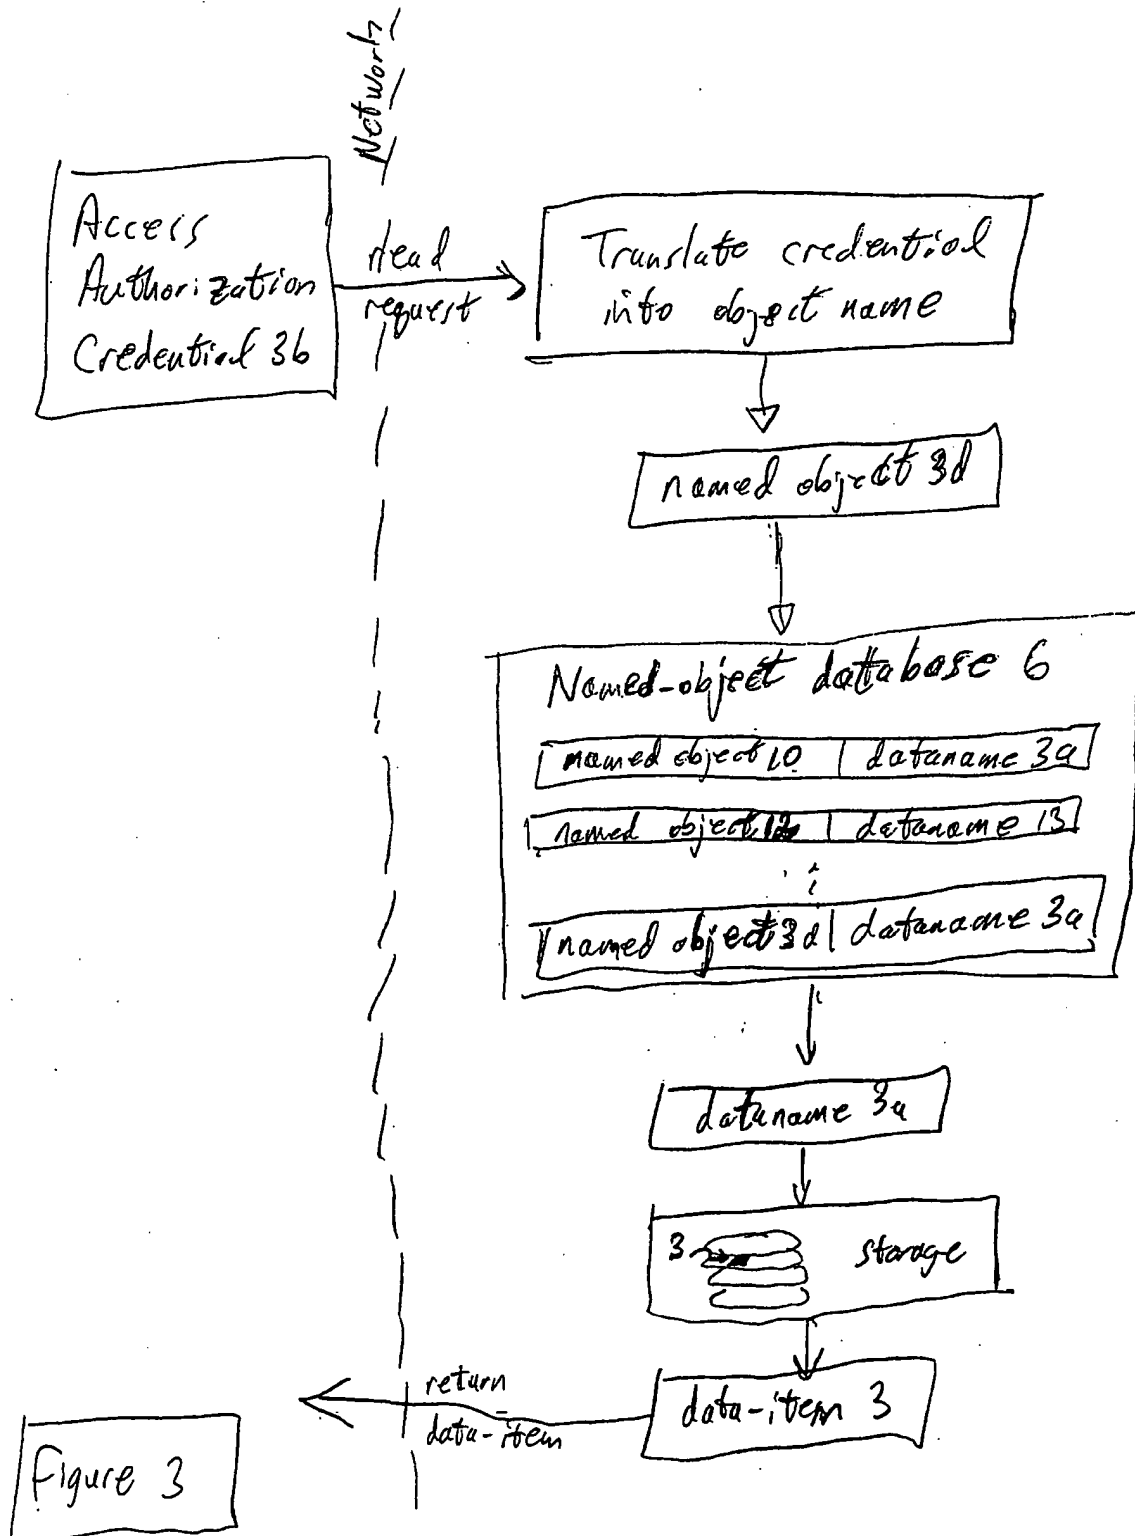 Network
Access
Authorization
Credential 3b
read
request
Translate credential
into object name
named object 3d
Named-object database 6
named object 10 | dataname 3a
named object 12 | dataname 13
named object 3d | dataname 3a
dataname 3a
3 storage
return
data-item
data-item 3
Figure 3